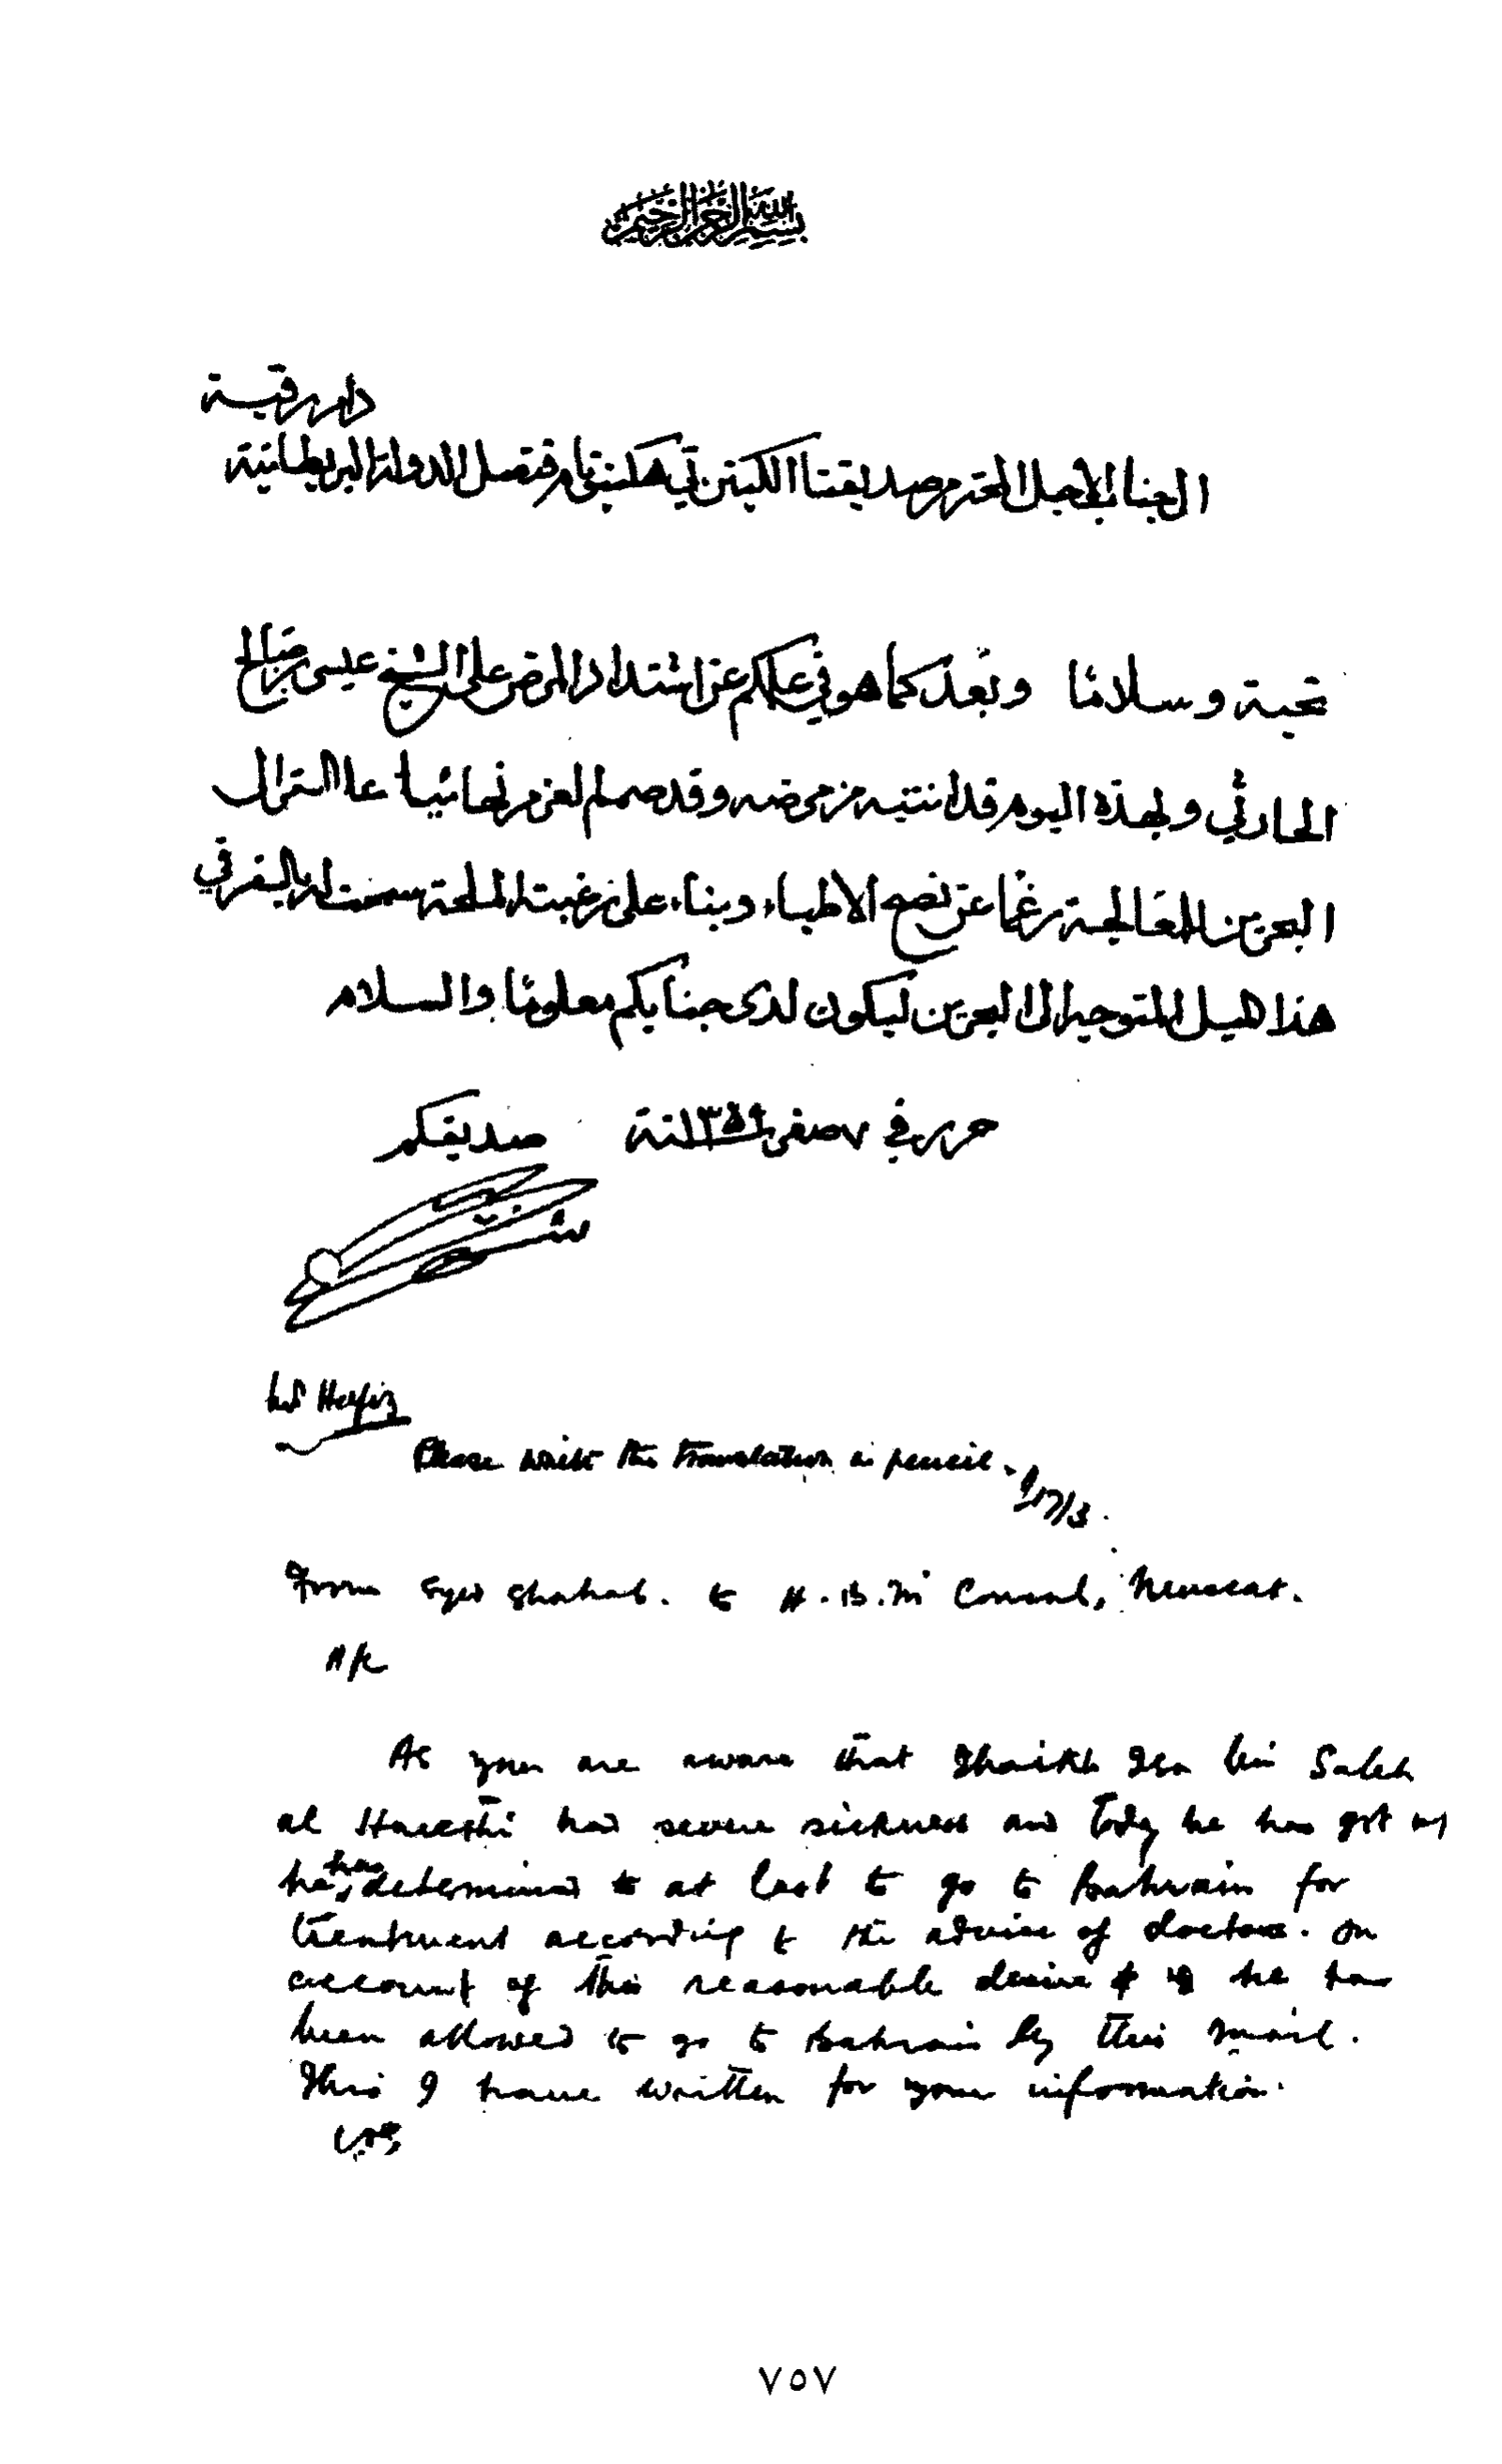 بسم الله الرحمن الرحيم
دام رقيه
الجناب الأجل المحترم صديقنا الكپتن تي هكنبتام قنصل الدولة البريطانية
تحية وسلاما وبعد كما هو في علمكم عن اشتداد المرض على الشيخ عيسى بن صالح
الحارثي ولهذه اليوم قد انتبه من مرضه وقد صمم العزم نهائيا على النزول
البحرين للمعالجة رغما عن نصح الاطباء وبناء على رغبته الملحة سمحت له بالسفر في
هذا الميل المتوجه الى البحرين ليكون لدى جنابكم معلوما والسلام
حرر في ٧ صفر سنة ١٣٥٩ صديقكم
Please write the translation in pencil.
17/3
From Syed Shahab. to H.B.M' Consul, Muscat.
A/C
As you are aware that Shaikh Isa bin Saleh
al Harethi had severe sickness and Today he has got up
he has determined to at last to go to Bahrain for
treatment according to the advice of doctors. On
account of this reasonable desire he has
been allowed to go to Bahrain by this mail.
This I have written for your information.
٧٥٧